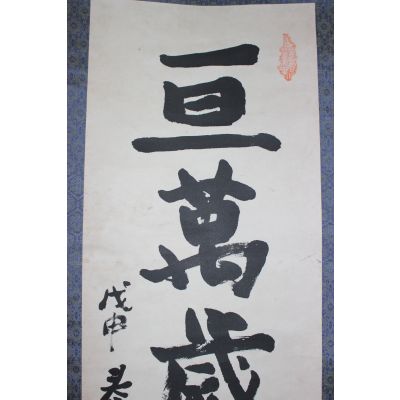 亘萬歳
戊申